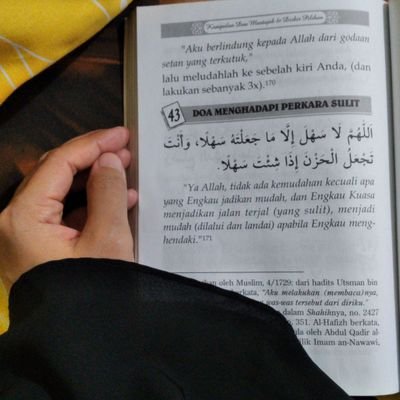 Kumpulan Doa Mustajab & Dzikir Pilihan
"Aku berlindung kepada Allah dari godaan
setan yang terkutuk,"
lalu meludahlah ke sebelah kiri Anda, (dan
lakukan sebanyak 3x).170
43 DOA MENGHADAPI PERKARA SULIT
اَللّٰهُمَّ لَا سَهْلَ إِلَّا مَا جَعَلْتَهُ سَهْلًا، وَأَنْتَ
تَجْعَلُ الْحَزْنَ إِذَا شِئْتَ سَهْلًا.
"Ya Allah, tidak ada kemudahan kecuali apa
yang Engkau jadikan mudah, dan Engkau Kuasa
menjadikan jalan terjal (yang sulit), menjadi
mudah (dilalui dan landai) apabila Engkau meng-
hendaki."171
oleh Muslim, 4/1729: dari hadits Utsman bin
berkata, "Aku melakukan (membaca)nya,
was-was tersebut dari diriku."
dalam Shahihnya, no. 2427
351. Al-Hafizh berkata,
oleh Abdul Qadir al-
Imam an-Nawawi,